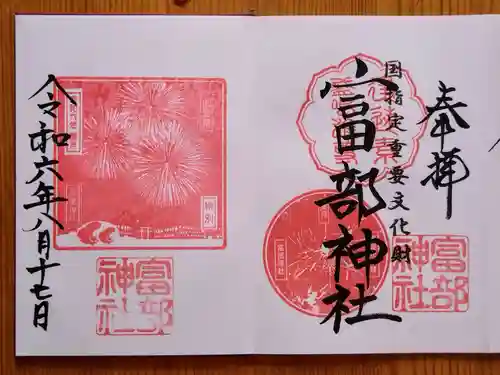 奉拝
国指定重要文化財
富部神社
富部
神社
令和六年八月十七日
特別
富部
神社